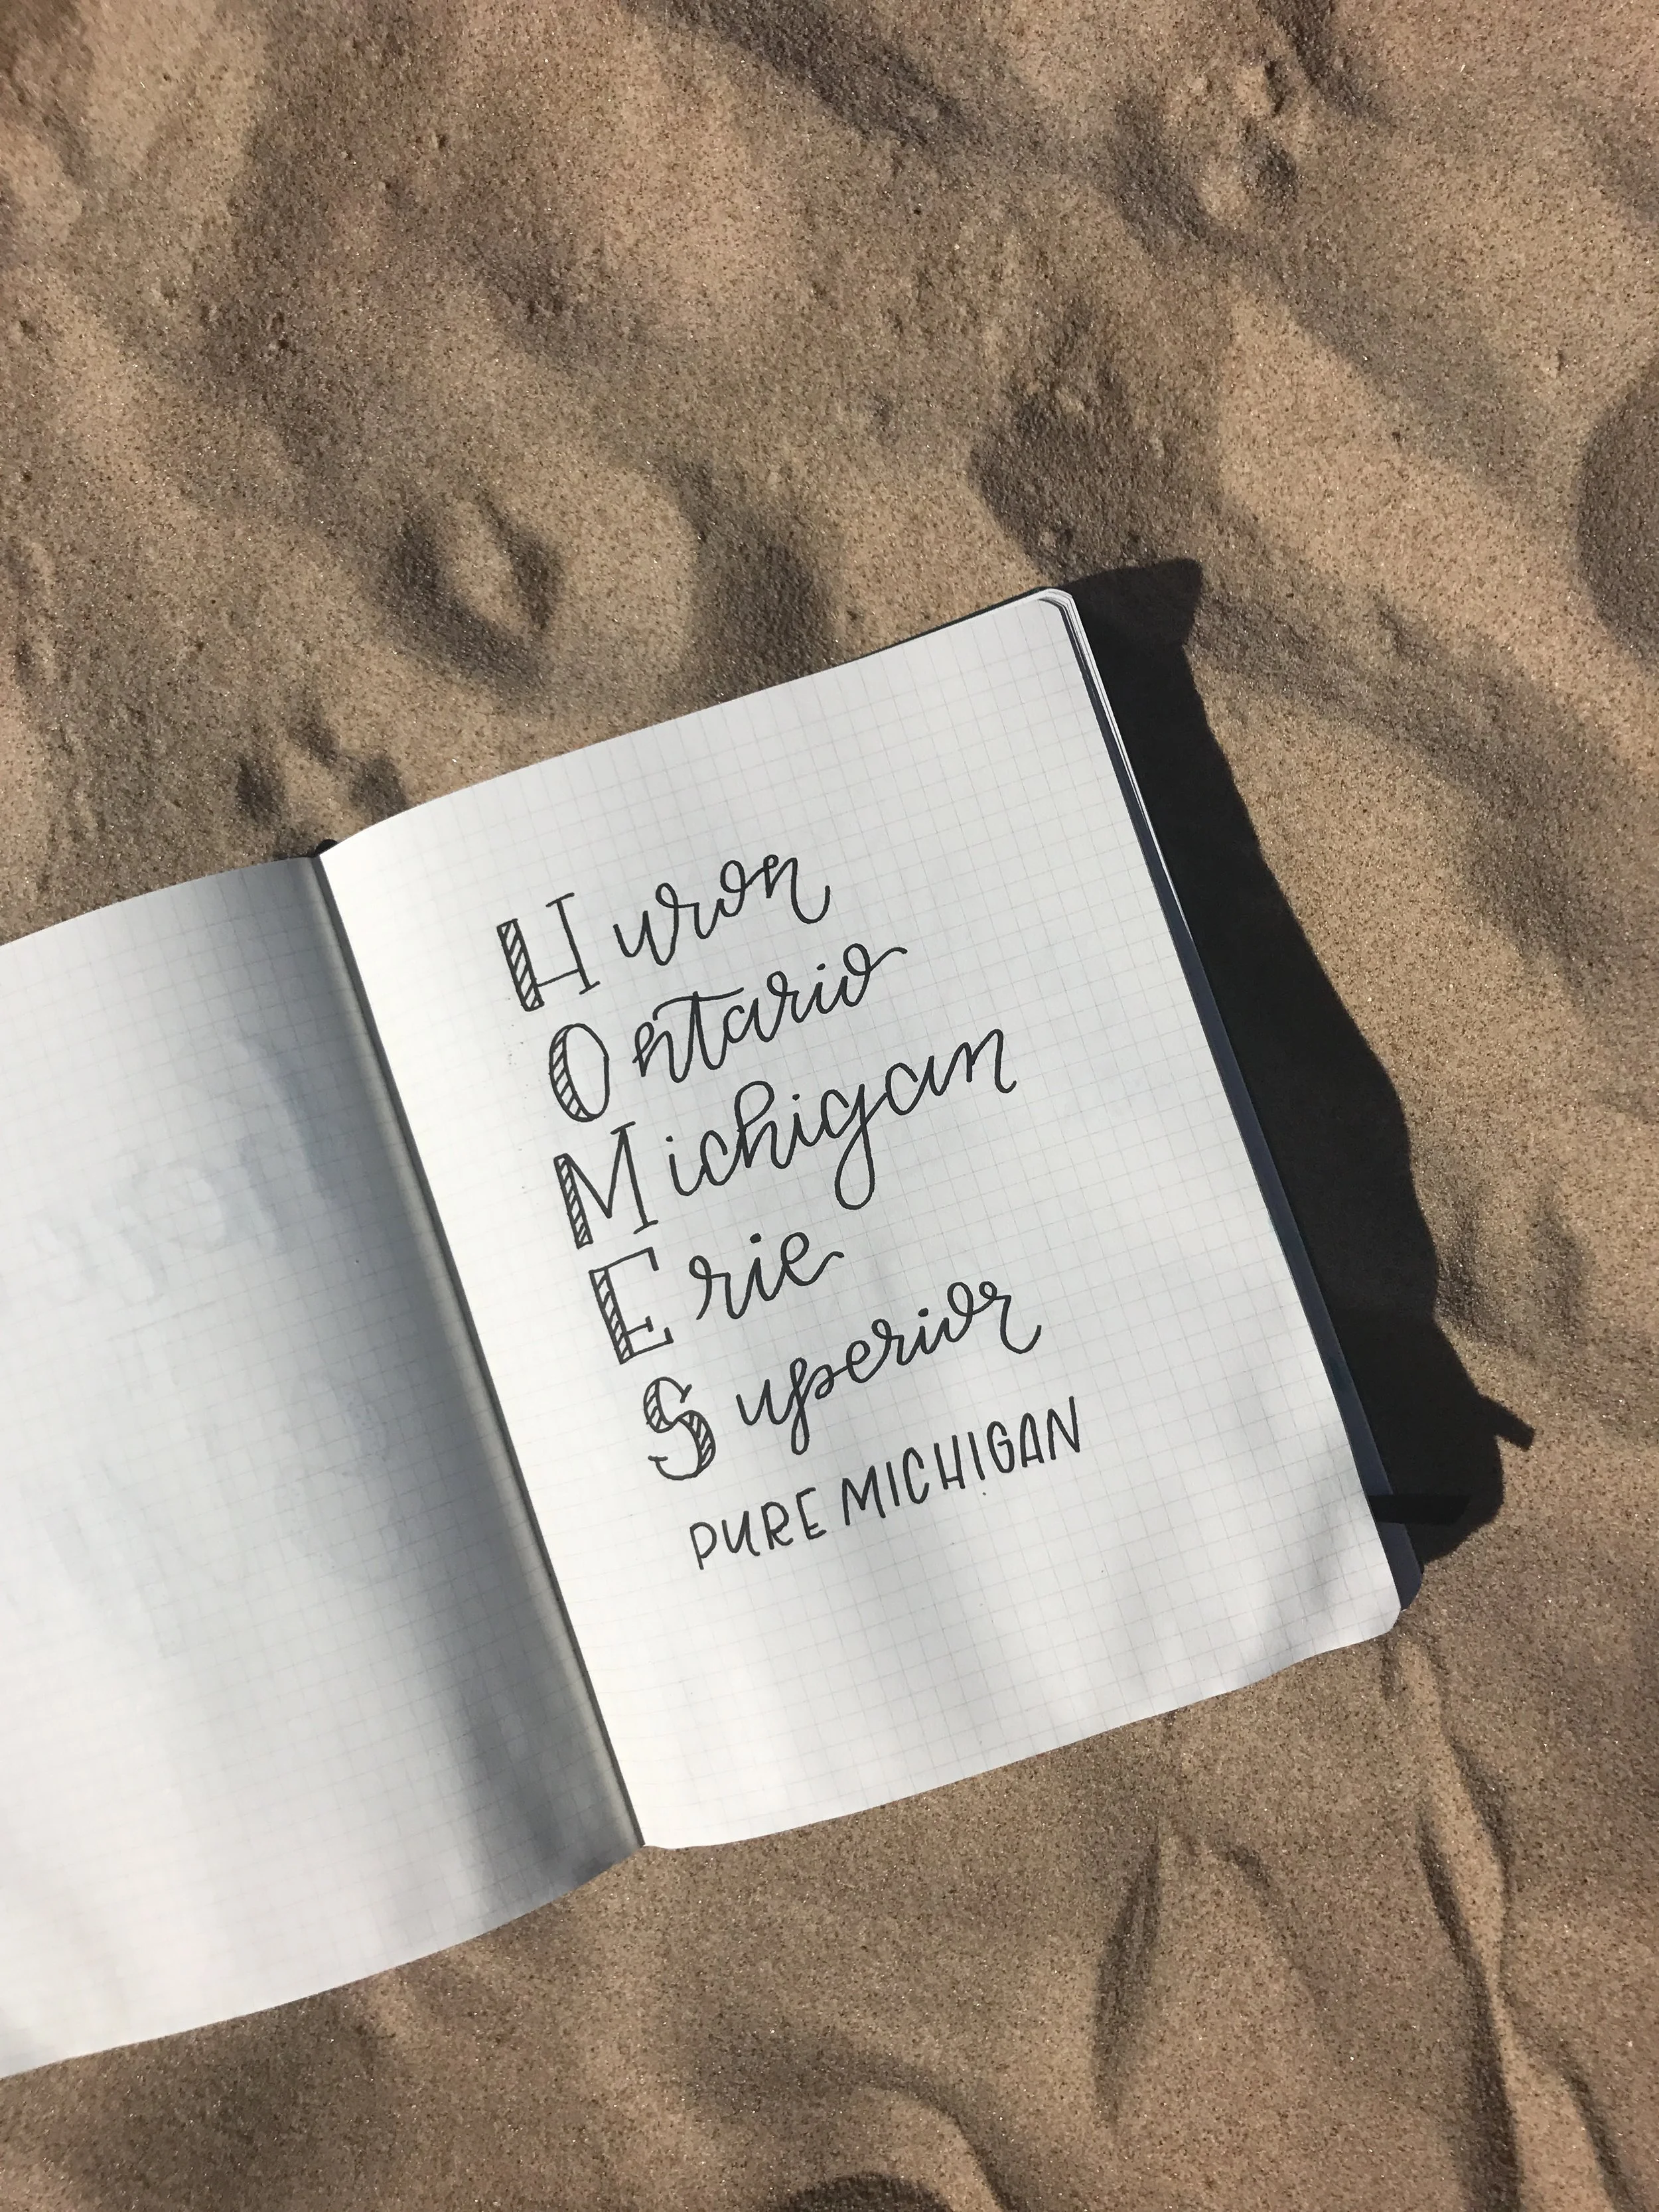 Huron
Ontario
Michigan
Erie
Superior
PURE MICHIGAN